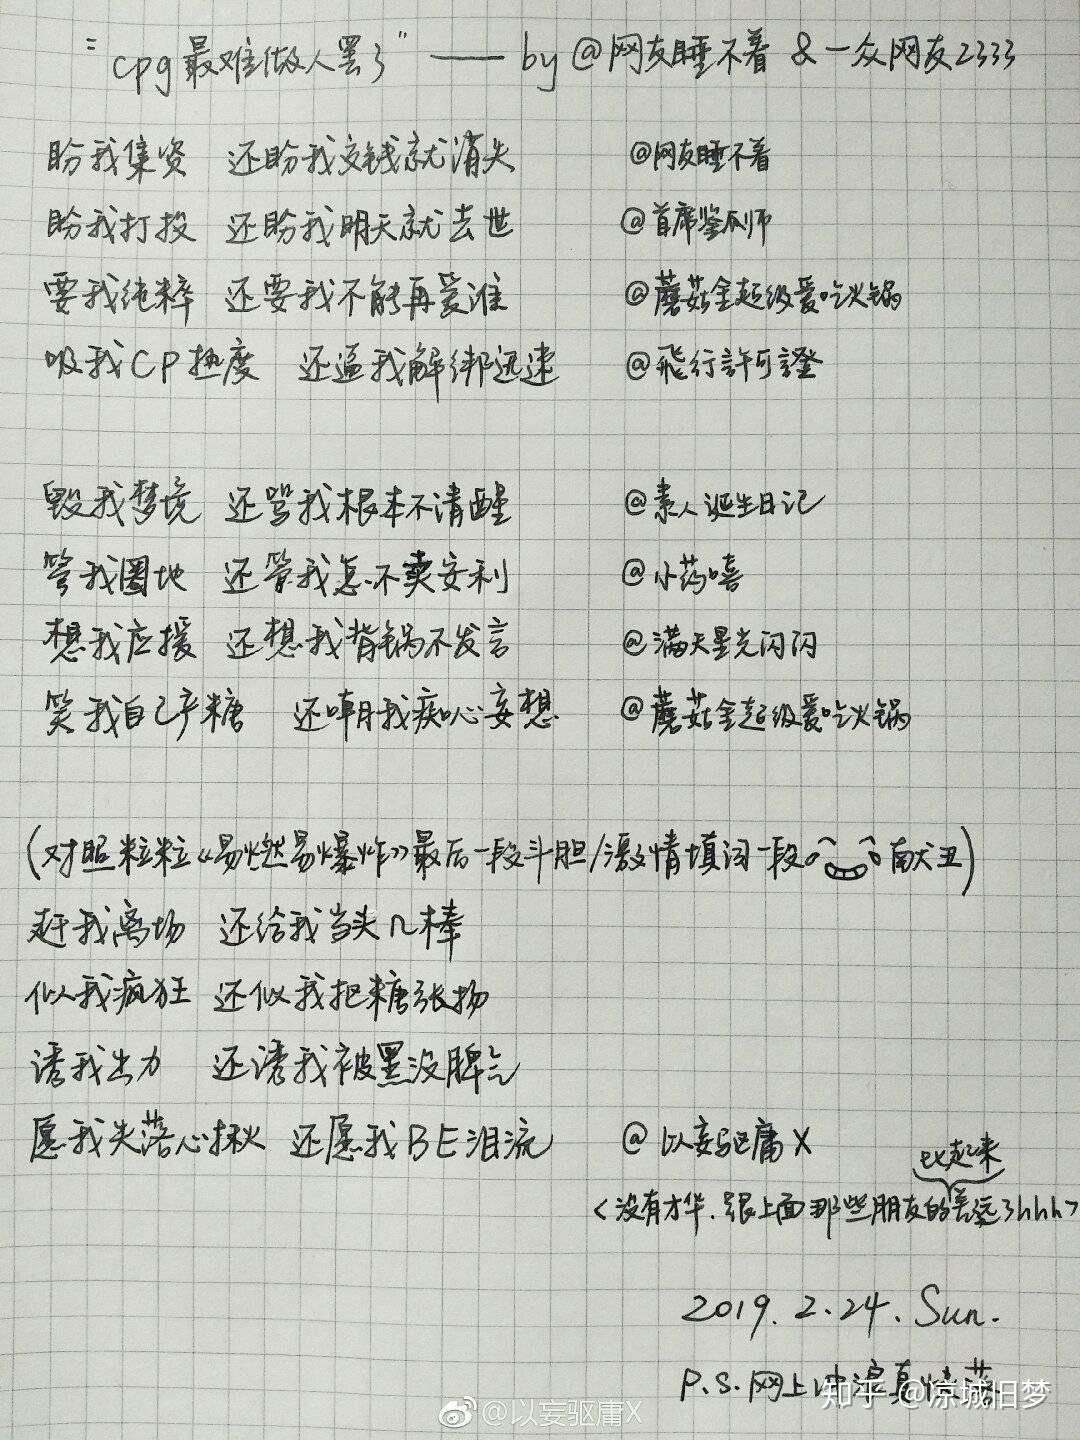 “cpg最难做人罢了”——by@网友睡不着 & 一众网友2333
盼我集资 还盼我交钱就消失 @网友睡不着
盼我打投 还盼我明天就去世 @首席鉴瓜师
要我纯粹 还要我不能再爱谁 @蘑菇全起级爱吃火锅
吸我CP热度 还逼我解绑迅速 @飛行許可證
毁我梦境 还骂我根本不清醒 @素人诞生日记
管我圈地 还管我怎不卖安利 @小药嘻
想我应援 还想我背锅不发言 @满天星光闪闪
笑我自己产糖 还嘲我痴心妄想 @蘑菇全起级爱吃火锅
(对照粒粒《易燃易爆炸》最后一段斗胆/激情填词一段 献丑)
赶我离场 还给我当头几棒
似我疯狂 还似我把糖张扬
诱我出力 还诱我被黑没脾气
愿我失落心揪 还愿我BE泪流 @以妄驱庸X
比起来
<没有才华.跟上面那些朋友的差远了hhh>
2019.2.24.Sun.
P.S.网上冲浪真快落
知乎 @凉城旧梦
@以妄驱庸X